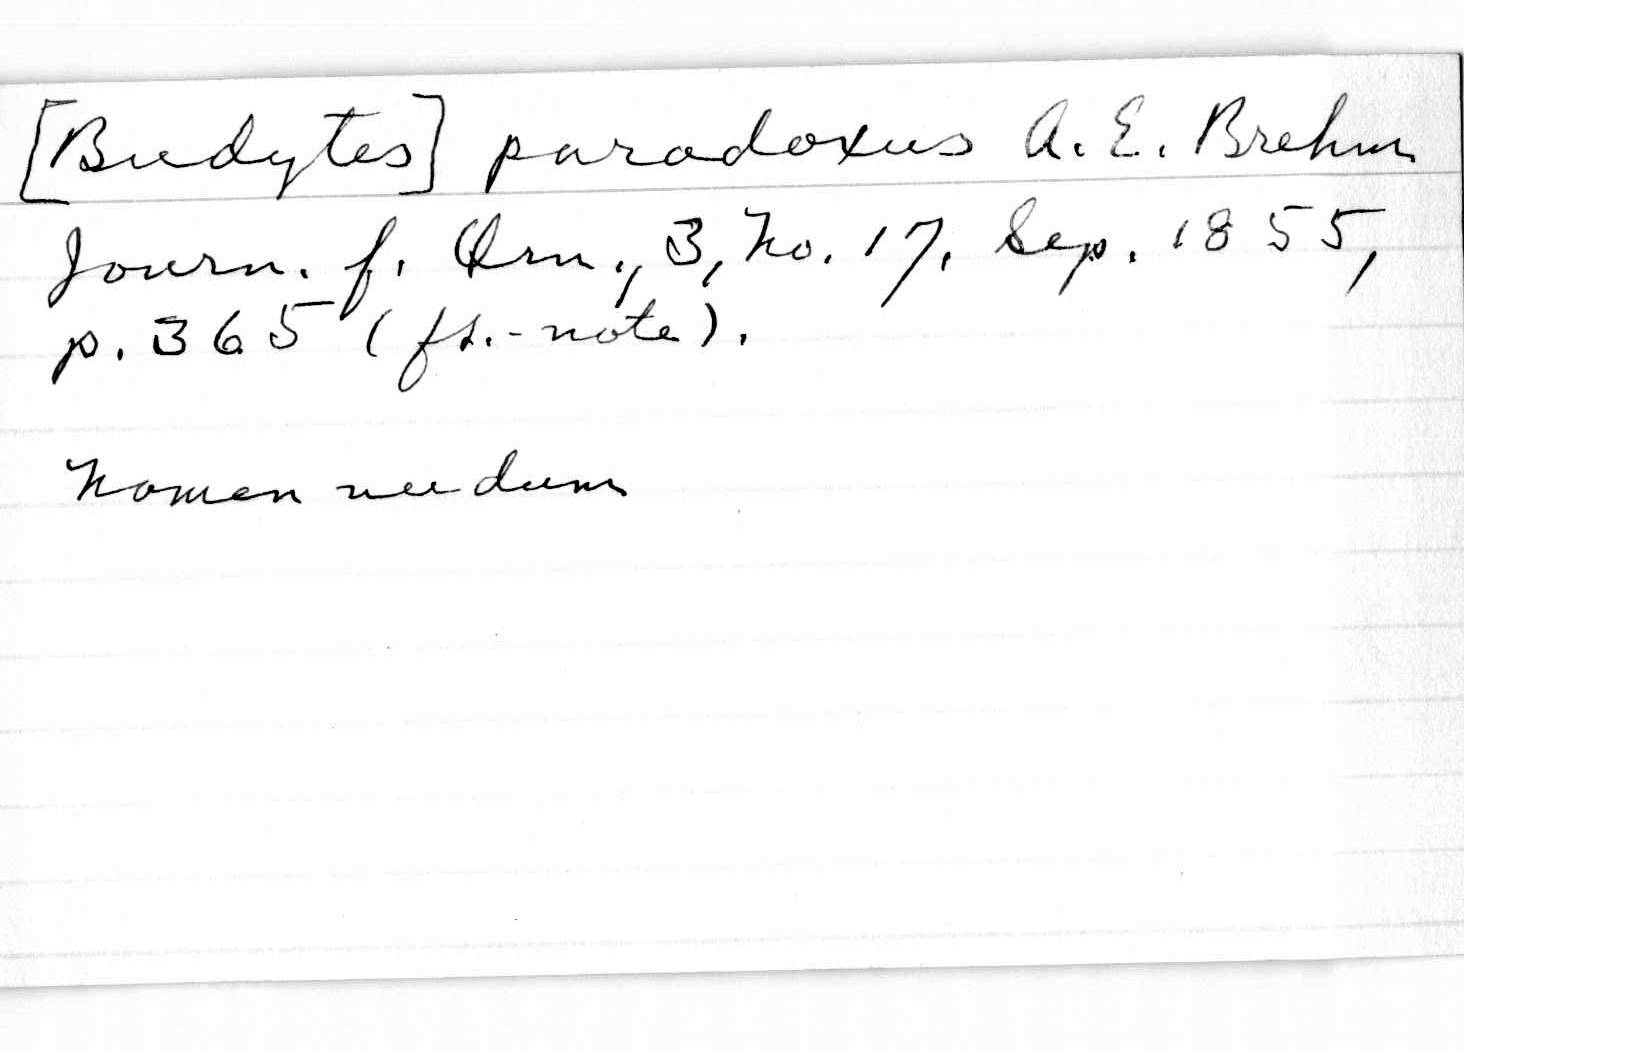 [Budytes] paradoxus A. E. Brehm
Journ. f. Orn., 3, No. 17, Sep. 1855,
p. 365 (ft.-note).
Nomen nudum